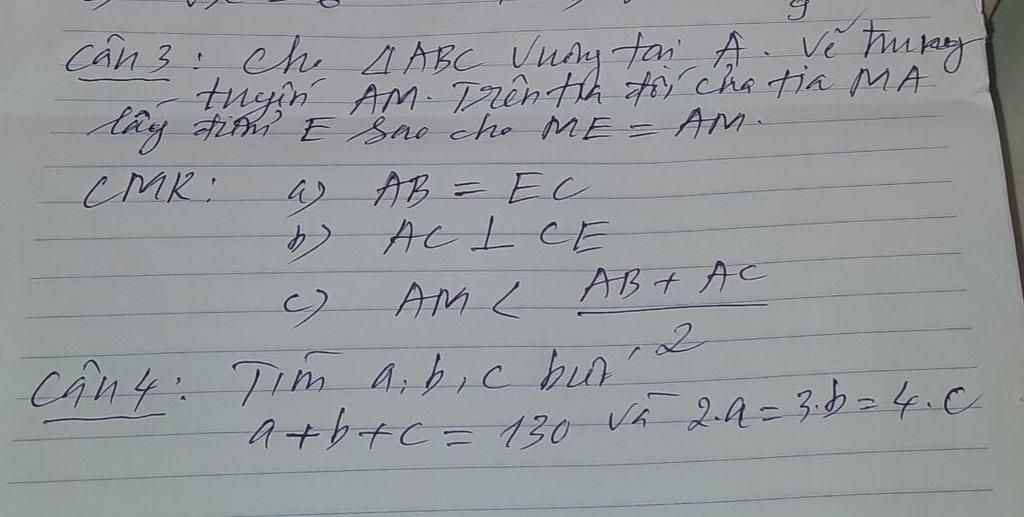 Câu 3: Cho ΔABC vuông tại A. Vẽ trung
tuyến AM. Trên tia đối của tia MA
lấy điểm E sao cho ME = AM.
CMR: a) AB = EC
b) AC ⊥ CE
c) AM < (AB + AC)/2
Câu 4: Tìm a, b, c biết
a+b+c = 130 và 2.a = 3.b = 4.c